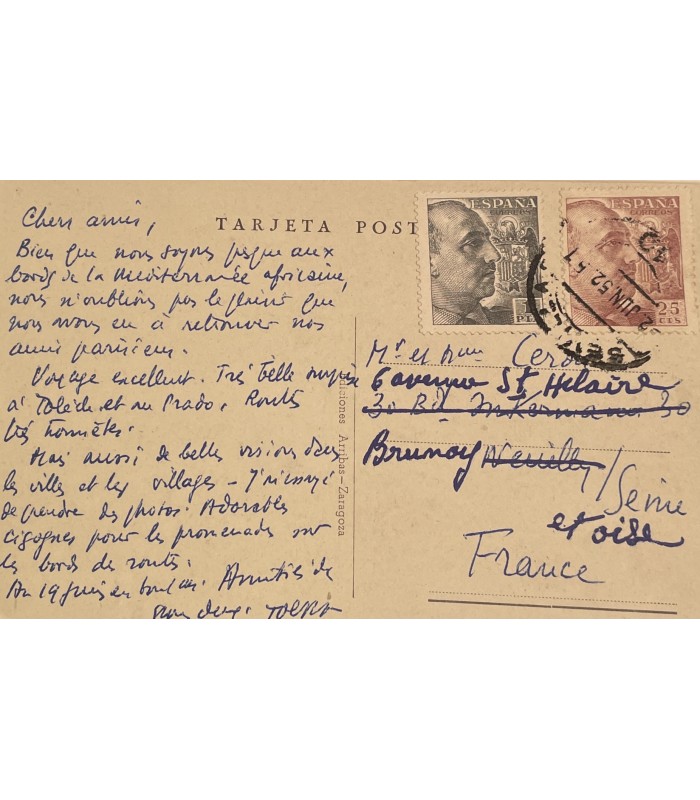 Chers amis,
Bien que nous soyons jusque aux
bords de la Méditerranée africaine,
nous n'oublions pas le plaisir que
nous avons eu à retrouver nos
amis parisiens.
Voyage excellent. Très belle
à Tolède et au Prado. Routes
très
Mais aussi de belles visions dans
les villes et les villages - J'ai essayé
de prendre des photos. Adorables
cigognes pour les promenades sur
les bords de routes.
Au 19 juin en tout cas. Amitiés de
TARJETA POST
Ediciones Arribas-Zaragoza
ESPAÑA
CORREOS
PTA
ESPAÑA
CORREOS
25
CTS
2 JUN 52
Mr et Mme
6 avenue St Hilaire
30 Bd Inkermann 30
Brunoy Neuilly /Seine
et oise
France